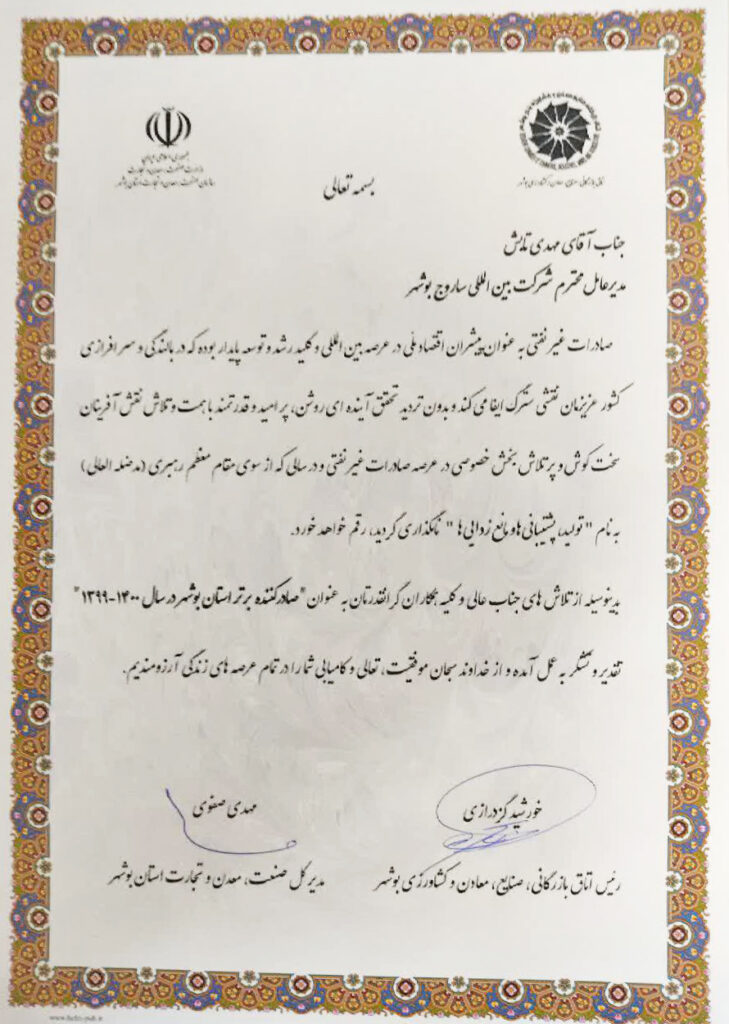 جمهوری اسلامی ایران
وزارت صنعت، معدن و تجارت
سازمان صنعت، معدن و تجارت استان بوشهر
اتاق بازرگانی، صنایع، معادن و کشاورزی بوشهر
بسمه تعالی
جناب آقای مهدی تابش
مدیرعامل محترم شرکت بین المللی ساروج بوشهر
صادرات غیرنفتی به عنوان پیشران اقتصاد ملی در عرصه بین المللی و کلید رشد و توسعه پایدار بوده که در بالندگی و سرافرازی
کشور عزیزمان نقشی سترگ ایفا می کند و بدون تردید تحقق آینده ای روشن، پر امید و قدرتمند با همت و تلاش نقش آفرینان
سخت کوش و پرتلاش بخش خصوصی در عرصه صادرات غیرنفتی و در سالی که از سوی مقام معظم رهبری (مدضله العالی)
به نام "تولید، پشتیبانی ها و مانع زدایی ها" نامگذاری گردید، رقم خواهد خورد.
بدینوسیله از تلاش های جناب عالی و کلیه همکاران گرانقدرتان به عنوان "صادرکننده برتر استان بوشهر در سال ۱۴۰۰-۱۳۹۹"
تقدیر و تشکر به عمل آمده و از خداوند سبحان موفقیت، تعالی و کامیابی شما را در تمام عرصه های زندگی آرزومندیم.
خورشید گزدرازی
رئیس اتاق بازرگانی، صنایع، معادن و کشاورزی بوشهر
مهدی صفوی
مدیرکل صنعت، معدن و تجارت استان بوشهر